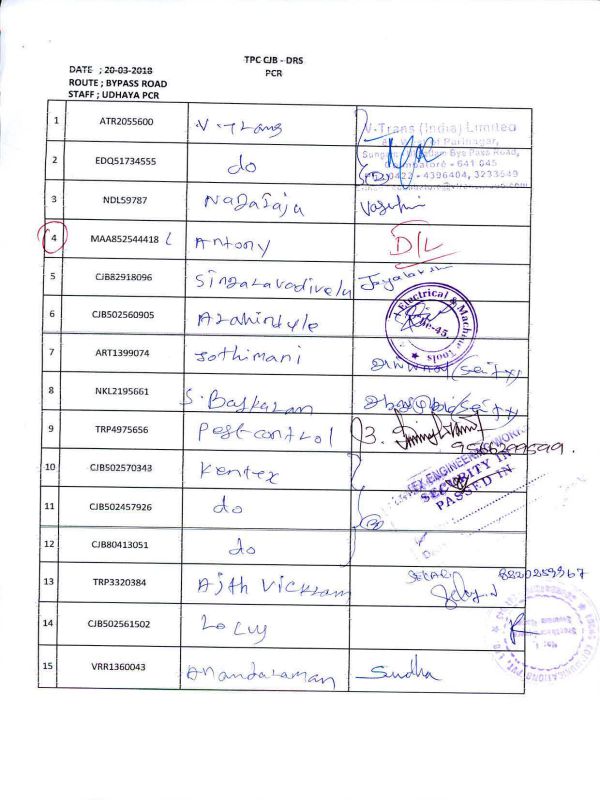 TPC CJB - DRS
DATE ; 20-03-2018
PCR
ROUTE ; BYPASS ROAD
STAFF ; UDHAYA PCR
1 ATR2055600 V-Trans
V-Trans (India) Limited
Bye Pass Road,
- 641 045
0422 - 4396404, 3233549
2 EDQ51734555 do
3 NDL59787 Nagaraju
4 MAA852544418 Antony D/L
5 CJB82918096 Singaravadivelu
6 CJB502560905
Electrical & Machine Tools
7 ART1399074 Jothimani
8 NKL2195661 S. Baskaran
9 TRP4975656 Pest control 3.
10 CJB502570343 Kentex
SECURITY IN
PASSED IN
11 CJB502457926 do
12 CJB80413051 do
13 TRP3320384 Ajth Vickram
14 CJB502561502
15 VRR1360043 Anandaraman Sudha